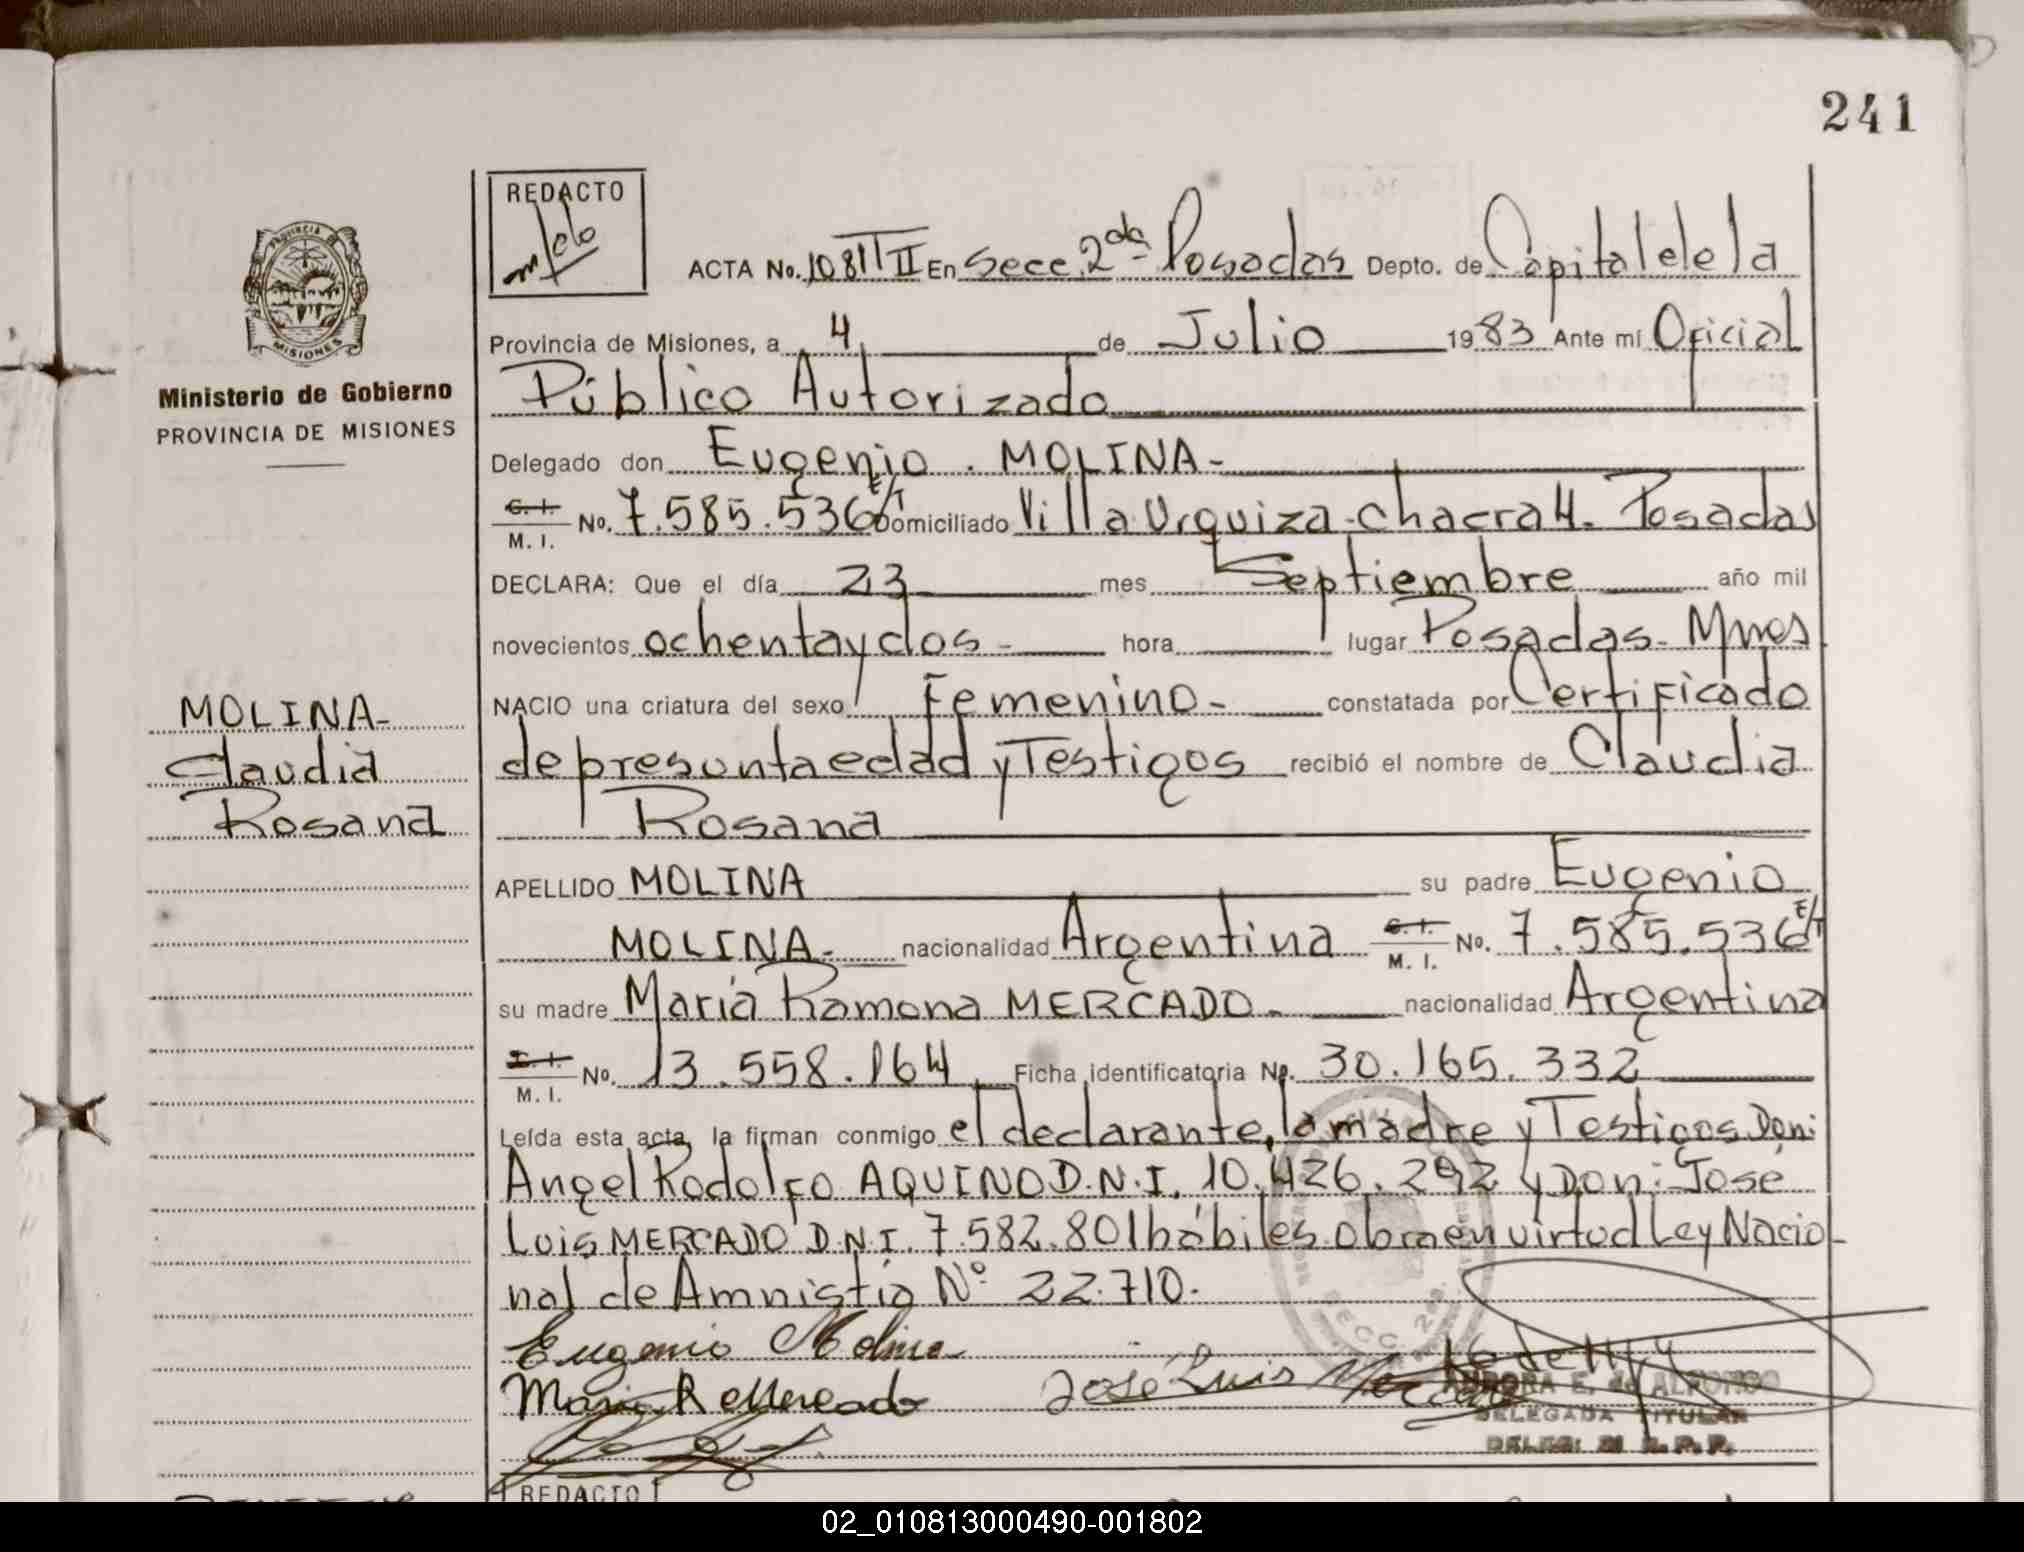 241
REDACTO
ACTA No. 1081 T II En Secc. 2da Posadas Depto. de Capital de la
PROVINCIA DE
MISIONES
Provincia de Misiones, a 4 de Julio 1983 Ante mí Oficial
Ministerio de Gobierno
PROVINCIA DE MISIONES
Público Autorizado
Delegado don Eugenio. MOLINA-
C. I. M. I. No. 7.585.536 E/T Domiciliado Villa Urquiza-chacra 4. Posadas
DECLARA: Que el día 23 mes Septiembre año mil
novecientos ochenta y dos - hora lugar Posadas- Mnes
MOLINA-
NACIO una criatura del sexo Femenino- constatada por Certificado
Claudia
de presunta edad y Testigos recibió el nombre de Claudia
Rosana
Rosana
APELLIDO MOLINA su padre Eugenio
MOLINA- nacionalidad Argentina C. I. M. I. No. 7.585.536 E/T
su madre María Ramona MERCADO- nacionalidad Argentina
M. I. No. 13.558.164 Ficha identificatoria No. 30.165.332
Leída esta acta, la firman conmigo el declarante, la madre y Testigos Don:
Angel Rodolfo AQUINO D.N.I. 10.426.292 y Don: José
Luis MERCADO D.N.I. 7.582.801 hábiles obra en virtud Ley Nacio-
nal de Amnistía Nº 22.710.
Eugenio Molina
Maria R Mercado José Luis Mercado
E. de ALFONSO
DELEGADA TITULAR
SECC. 2da.
REDACTO
02_010813000490-001802